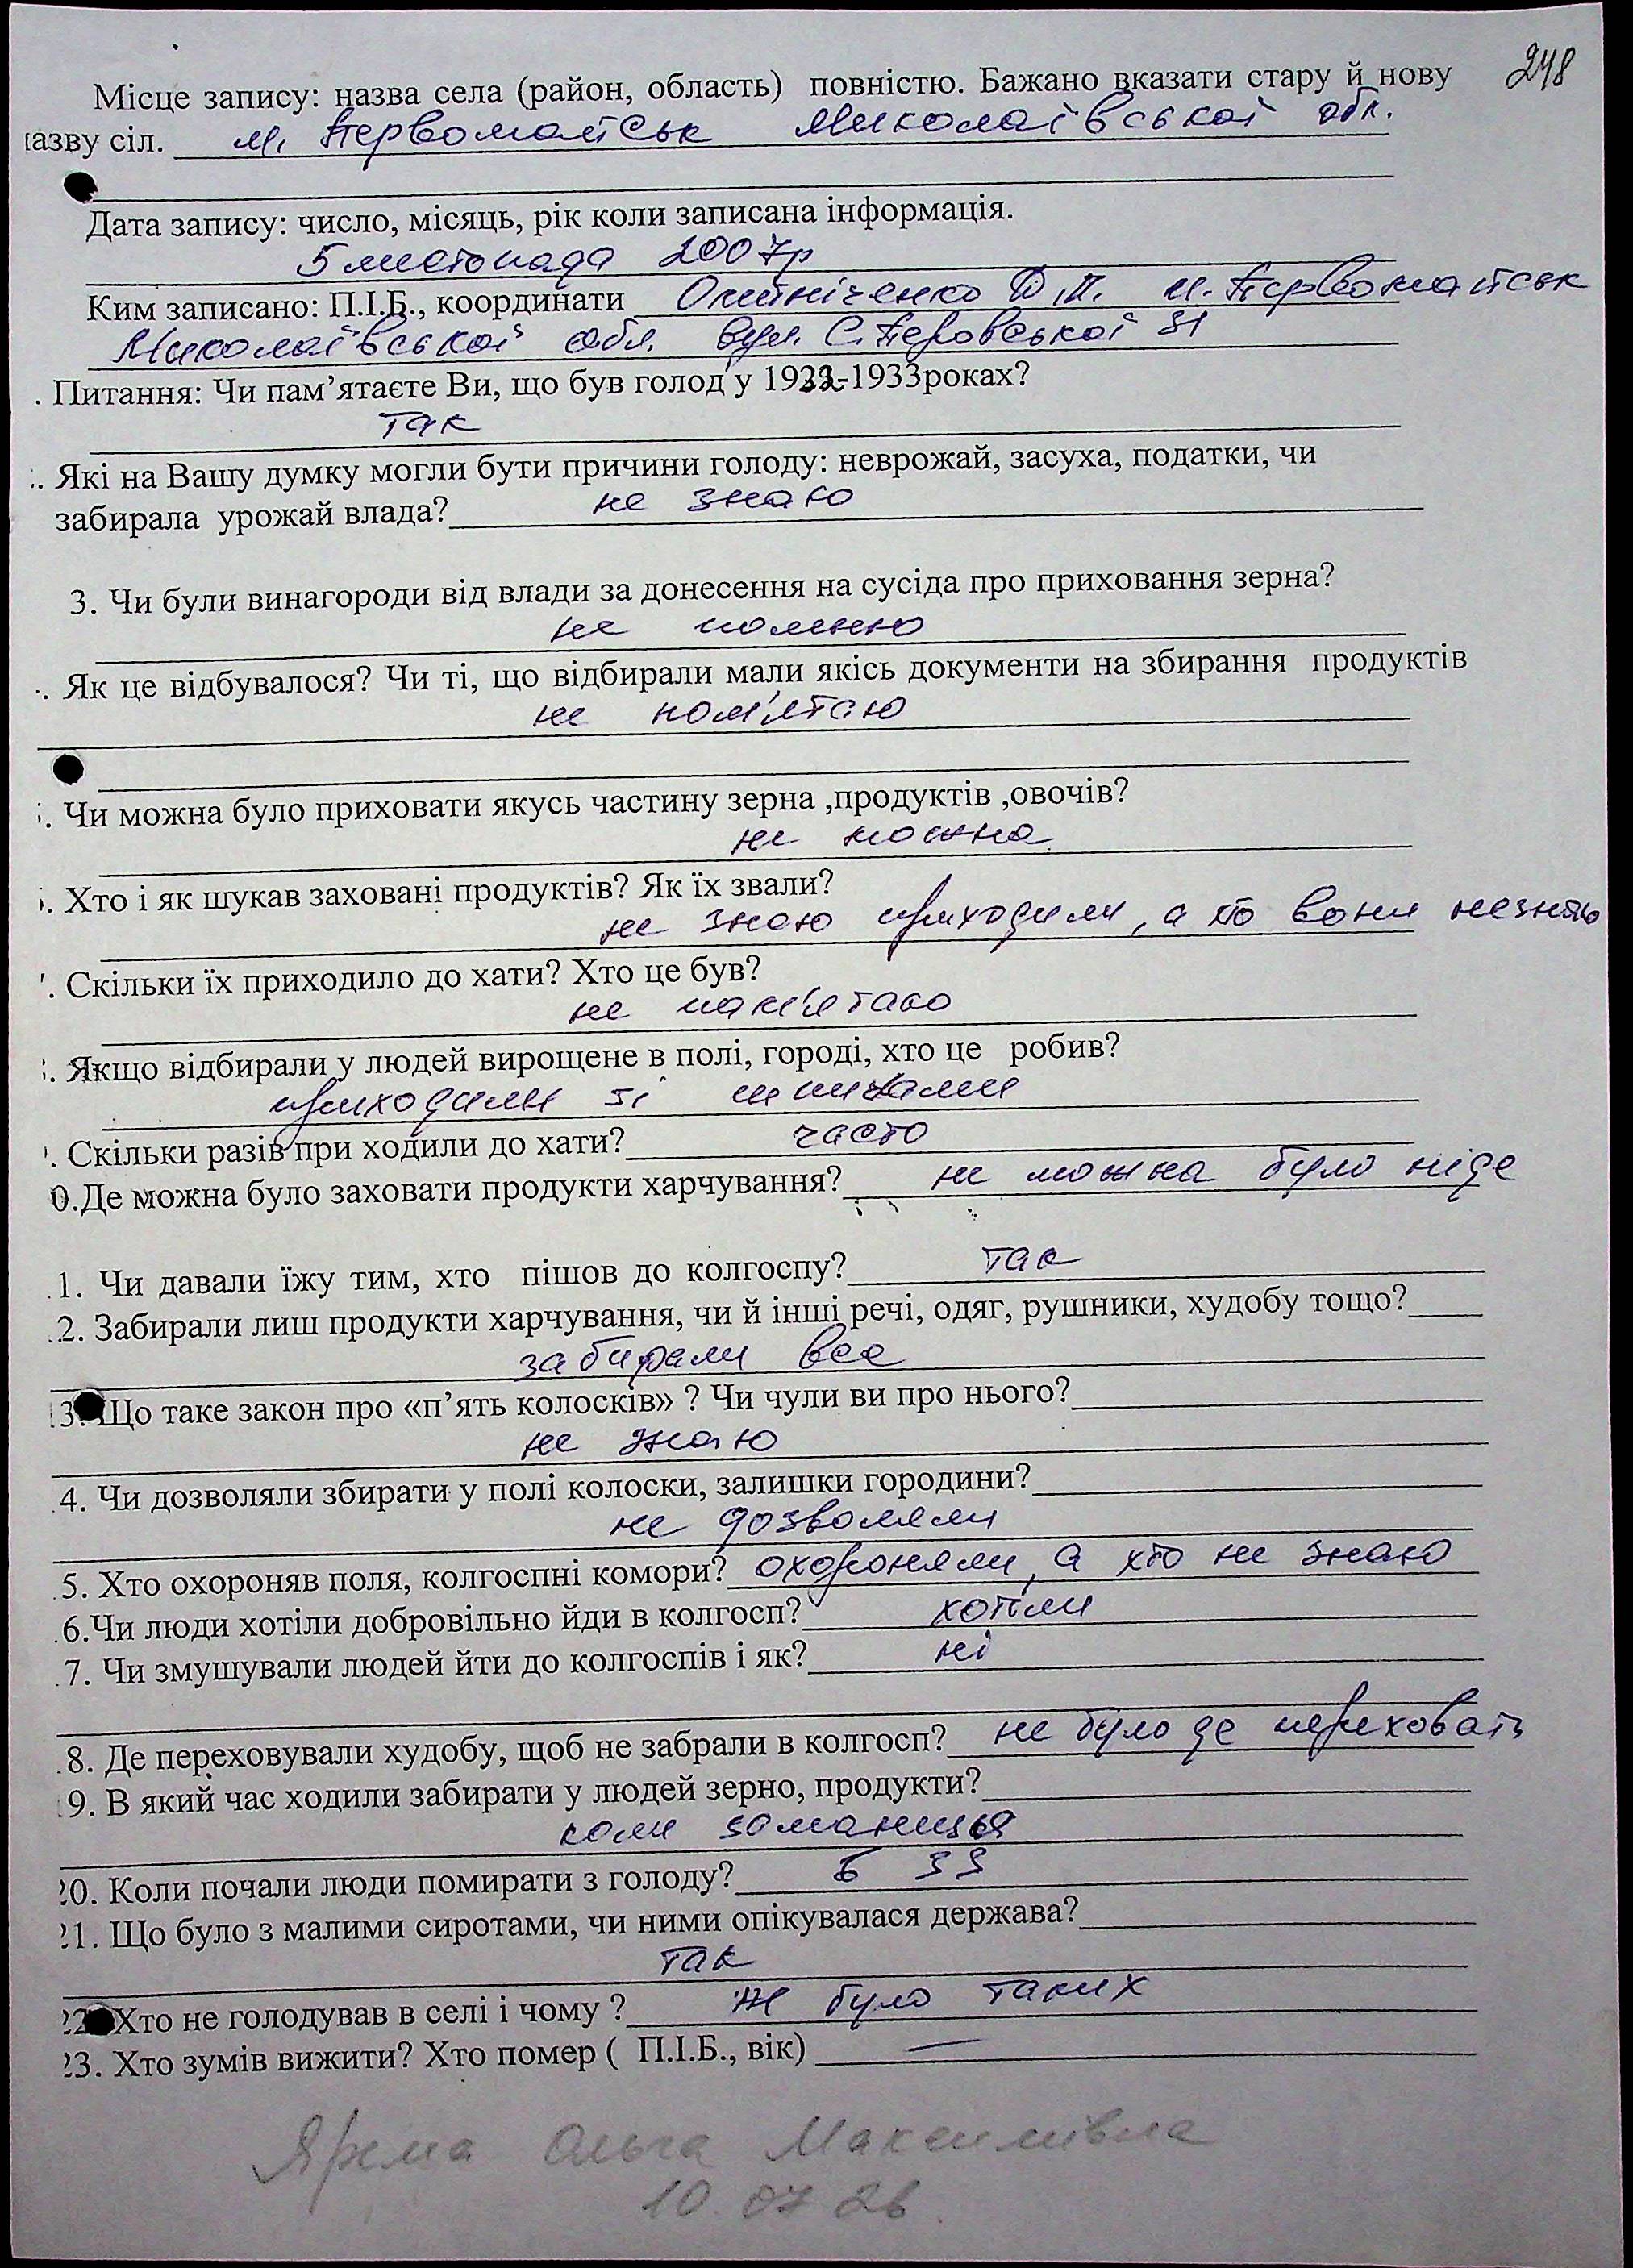 248
Місце запису: назва села (район, область) повністю. Бажано вказати стару й нову
назву сіл. м. Первомайськ Миколаївської обл.
Дата запису: число, місяць, рік коли записана інформація.
5 листопада 2007р
Ким записано: П.І.Б., координати Олійніченко В.П. м. Первомайськ
Миколаївської обл. вул. С.Перовської 31
. Питання: Чи пам’ятаєте Ви, що був голод у 1932-1933роках?
так
. Які на Вашу думку могли бути причини голоду: неврожай, засуха, податки, чи
забирала урожай влада? не знаю
3. Чи були винагороди від влади за донесення на сусіда про приховання зерна?
не помню
. Як це відбувалося? Чи ті, що відбирали мали якісь документи на збирання продуктів
не пом'ятаю
. Чи можна було приховати якусь частину зерна ,продуктів ,овочів?
не можна
. Хто і як шукав заховані продуктів? Як їх звали?
не знаю приходили, а хто вони незнаю
. Скільки їх приходило до хати? Хто це був?
не пам'ятаю
. Якщо відбирали у людей вирощене в полі, городі, хто це робив?
приходили зі шпичами
. Скільки разів при ходили до хати? часто
0.Де можна було заховати продукти харчування? не можна було ніде
1. Чи давали їжу тим, хто пішов до колгоспу? так
2. Забирали лиш продукти харчування, чи й інші речі, одяг, рушники, худобу тощо?
забирали все
13. Що таке закон про «п’ять колосків» ? Чи чули ви про нього?
не знаю
4. Чи дозволяли збирати у полі колоски, залишки городини?
не дозволяли
5. Хто охороняв поля, колгоспні комори? охороняли, а хто не знаю
6.Чи люди хотіли добровільно йди в колгосп? хотіли
7. Чи змушували людей йти до колгоспів і як? ні
8. Де переховували худобу, щоб не забрали в колгосп? не було де переховать
19. В який час ходили забирати у людей зерно, продукти?
коли заманиця
20. Коли почали люди помирати з голоду? в 33
21. Що було з малими сиротами, чи ними опікувалася держава?
так
22. Хто не голодував в селі і чому ? не було таких
23. Хто зумів вижити? Хто помер ( П.І.Б., вік) —
Ярема Ольга Максимівна
10.07 26